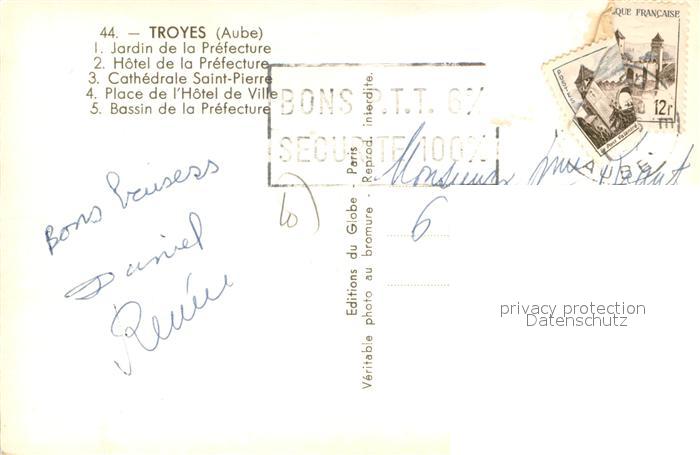 44. — TROYES (Aube)
1. Jardin de la Préfecture
2. Hôtel de la Préfecture
3. Cathédrale Saint-Pierre
4. Place de l'Hôtel de Ville
5. Bassin de la Préfecture
BONS P.T.T. 6%
SÉCURITÉ 100%
QUE FRANÇAISE
12f
AUBE
Monsieur
6
10
Bons baisers
Daniel
Renée
Editions du Globe - Paris
Véritable photo au bromure - Reprod. interdite.
privacy protection
Datenschutz